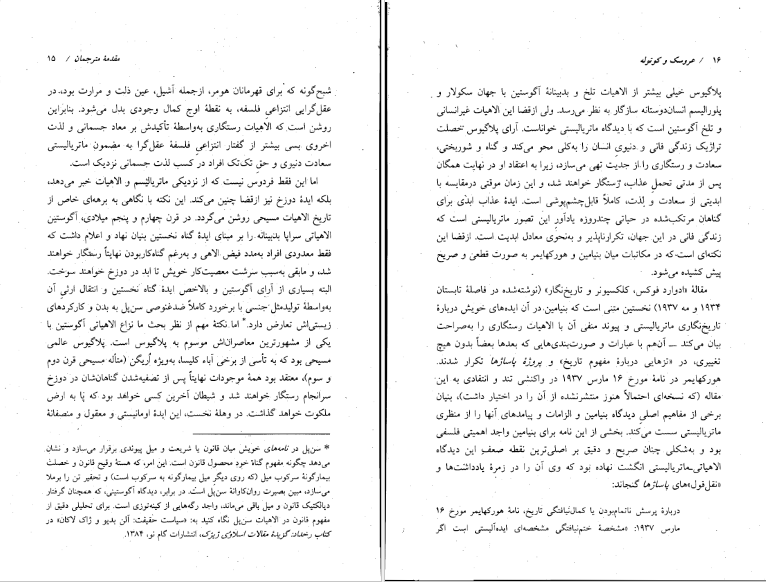 مقدمهٔ مترجمان / ۱۵
شبح‌گونه که برای قهرمانان هومر، ازجمله آشیل، عین ذلت و مرارت بود، در
عقل‌گرایی انتزاعیِ فلسفه، به نقطهٔ اوج کمال وجودی بدل می‌شود. بنابراین
روشن است که الاهیات رستگاری به‌واسطهٔ تأکیدش بر معاد جسمانی و لذت
اخروی بسی بیشتر از گفتار انتزاعیِ فلسفهٔ عقل‌گرا به مضمون ماتریالیستیِ
سعادت دنیوی و حقِ تک‌تک افراد در کسب لذت جسمانی نزدیک است.
اما این فقط فردوس نیست که از نزدیکی ماتریالیسم و الاهیات خبر می‌دهد،
بلکه ایدهٔ دوزخ نیز ازقضا چنین می‌کند. این نکته با نگاهی به برهه‌ای خاص از
تاریخ الاهیات مسیحی روشن می‌گردد. در قرن چهارم و پنجم میلادی، آگوستین
الاهیاتی سراپا بدبینانه را بر مبنای ایدهٔ گناه نخستین بنیان نهاد و اعلام داشت که
فقط معدودی افراد به‌مدد فیض الاهی و به‌رغم گناه‌کاربودن نهایتاً رستگار خواهند
شد، و مابقی به‌سبب سرشت معصیت‌کار خویش تا ابد در دوزخ خواهند سوخت.
البته بسیاری از آرای آگوستین و بالاخص ایدهٔ گناه نخستین و انتقال ارثی آن
به‌واسطهٔ تولیدمثل جنسی با برخورد کاملاً ضدغنوصی سن‌پل به بدن و کارکردهای
زیستی‌اش تعارض دارد.* اما نکتهٔ مهم از نظر بحث ما نزاع الاهیاتی آگوستین با
یکی از مشهورترین معاصران‌اش موسوم به پلاگیوس است. پلاگیوس عالمی
مسیحی بود که به تأسی از برخی آباء کلیسا، به‌ویژه اُریگن (متأله مسیحی قرن دوم
و سوم)، معتقد بود همهٔ موجودات نهایتاً پس از تصفیه‌شدن گناهان‌شان در دوزخ
سرانجام رستگار خواهند شد و شیطان آخرین کسی خواهد بود که پا به ارض
ملکوت خواهد گذاشت. در وهلهٔ نخست، این ایدهٔ اومانیستی و معقول و منصفانهٔ
* سن‌پل در نامه‌های خویش میان قانون یا شریعت و میل پیوندی برقرار می‌سازد و نشان
می‌دهد چگونه مفهوم گناه خود محصول قانون است. این امر، که هستهٔ وقیح قانون و خصلت
بیمارگونهٔ سرکوب میل (که روی دیگر میل بیمارگونه به سرکوب است) و تحقیر تن را برملا
می‌سازد، مبین بصیرت روان‌کاوانهٔ سن‌پل است. در برابر، دیدگاه آگوستینی، که همچنان گرفتار
دیالکتیک قانون و میل باقی می‌ماند، واجد رگه‌هایی از کینه‌توزی است. برای تحلیلی دقیق از
مفهوم قانون در الاهیات سن‌پل نگاه کنید به: «سیاست حقیقت: آلن بدیو و ژاک لاکان» در
کتاب رخداد: گزیدهٔ مقالات اسلاوی ژیژک، انتشارات گام نو، ۱۳۸۴.
۱۶ / عروسک و کوتوله
پلاگیوس خیلی بیشتر از الاهیات تلخ و بدبینانهٔ آگوستین با جهان سکولار و
پلورالیسم انسان‌دوستانه سازگار به نظر می‌رسد. ولی ازقضا این الاهیات غیرانسانی
و تلخ آگوستین است که با دیدگاه ماتریالیستی خواناست. آرای پلاگیوس خصلت
تراژیک زندگی فانی و دنیوی انسان را به‌کلی محو می‌کند و گناه و شوربختی،
سعادت و رستگاری را از جدیت تهی می‌سازد، زیرا به اعتقاد او در نهایت همگان
پس از مدتی تحمل عذاب، رستگار خواهند شد، و این زمان موقتی درمقایسه با
ابدیتی از سعادت و لذت، کاملاً قابل‌چشم‌پوشی است. ایدهٔ عذاب ابدی برای
گناهان مرتکب‌شده در حیاتی چندروزه یادآور این تصور ماتریالیستی است که
زندگی فانی در این جهان، تکرارناپذیر و به‌نحوی معادل ابدیت است. ازقضا این
نکته‌ای است که در مکاتبات میان بنیامین و هورکهایمر به صورت قطعی و صریح
پیش کشیده می‌شود.
مقالهٔ «ادوارد فوکس، کلکسیونر و تاریخ‌نگار» (نوشته‌شده در فاصلهٔ تابستان
۱۹۳۴ و مه ۱۹۳۷) نخستین متنی است که بنیامین در آن ایده‌های خویش دربارهٔ
تاریخ‌نگاری ماتریالیستی و پیوند منفی آن با الاهیات رستگاری را به‌صراحت
بیان می‌کند ـــ آن‌هم با عبارات و صورت‌بندی‌هایی که بعدها بعضاً بدون هیچ
تغییری، در «تزهایی دربارهٔ مفهوم تاریخ» و پروژهٔ پاساژها تکرار شدند.
هورکهایمر در نامهٔ مورخ ۱۶ مارس ۱۹۳۷ در واکنشی تند و انتقادی به این
مقاله (که نسخه‌ای احتمالاً هنوز منتشرنشده از آن را در اختیار داشت)، بنیان
برخی از مفاهیم اصلی دیدگاه بنیامین و الزامات و پیامدهای آنها را از منظری
ماتریالیستی سست می‌کند. بخشی از این نامه برای بنیامین واجد اهمیتی فلسفی
بود و به‌شکلی چنان صریح و دقیق بر اصلی‌ترین نقطه ضعف این دیدگاه
الاهیاتی‌ـماتریالیستی انگشت نهاده بود که وی آن را در زمرهٔ یادداشت‌ها و
«نقل‌قول»های پاساژها گنجاند:
دربارهٔ پرسش ناتمام‌بودن یا کمال‌نیافتگی تاریخ، نامهٔ هورکهایمر مورخ ۱۶
مارس ۱۹۳۷: «مشخصهٔ ختم‌نیافتگی مشخصه‌ای ایده‌آلیستی است اگر